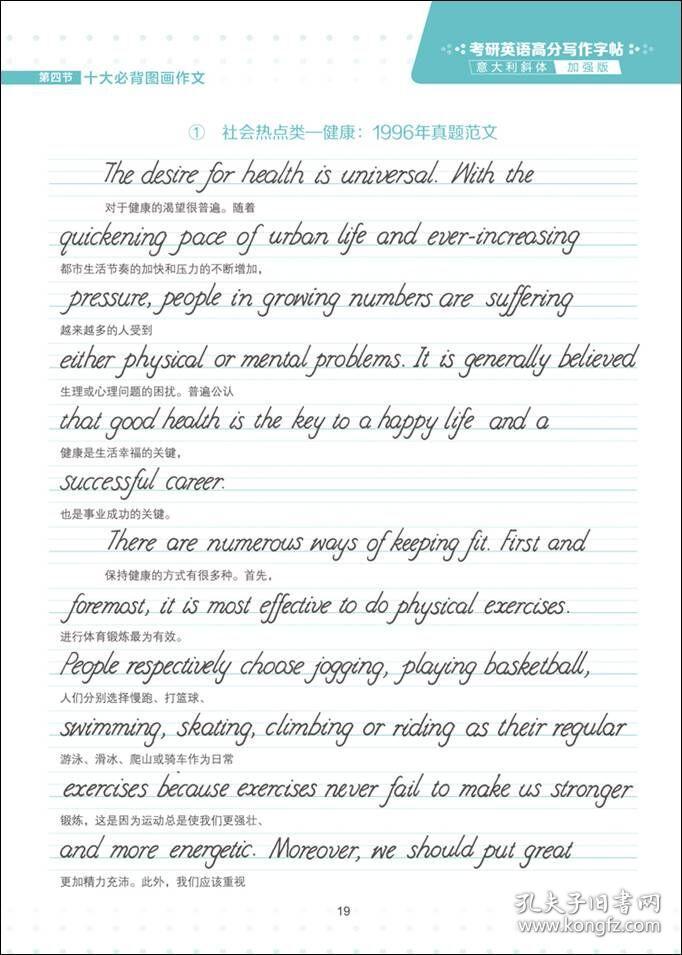 考研英语高分写作字帖
意大利斜体 加强版
第四节 十大必背图画作文
① 社会热点类—健康：1996年真题范文
The desire for health is universal. With the
对于健康的渴望很普遍。随着
quickening pace of urban life and ever-increasing
都市生活节奏的加快和压力的不断增加，
pressure, people in growing numbers are suffering
越来越多的人受到
either physical or mental problems. It is generally believed
生理或心理问题的困扰。普遍公认
that good health is the key to a happy life and a
健康是生活幸福的关键，
successful career.
也是事业成功的关键。
There are numerous ways of keeping fit. First and
保持健康的方式有很多种。首先，
foremost, it is most effective to do physical exercises.
进行体育锻炼最为有效。
People respectively choose jogging, playing basketball,
人们分别选择慢跑、打篮球、
swimming, skating, climbing or riding as their regular
游泳、滑冰、爬山或骑车作为日常
exercises because exercises never fail to make us stronger
锻炼，这是因为运动总是使我们更强壮、
and more energetic. Moreover, we should put great
更加精力充沛。此外，我们应该重视
19
孔夫子旧书网
www.kongfz.com